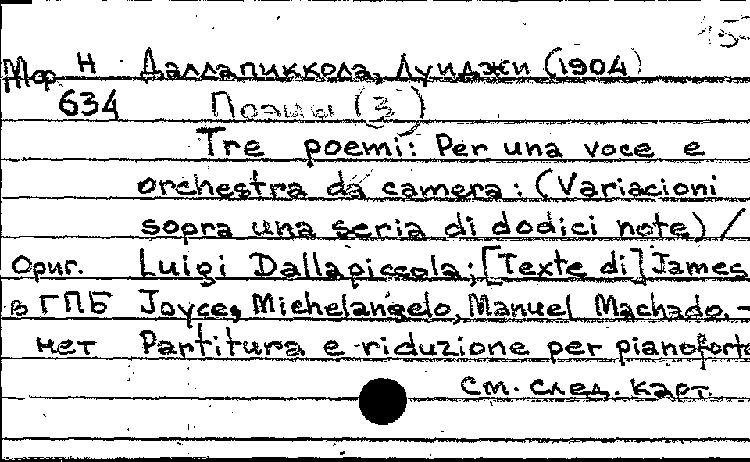 Н Даллапиккола, Луиджи (1904)
634 Поэмы (3)
Tre poemi: Per una voce e
orchestra da camera: (Variacioni
sopra una seria di dodici note) /
Ориг. Luigi Dallapiccola; [Texte di] James
в ГПБ Joyce, Michelangelo, Manuel Machado. -
нет Partitura e riduzione per pianoforte
См. след. карт.